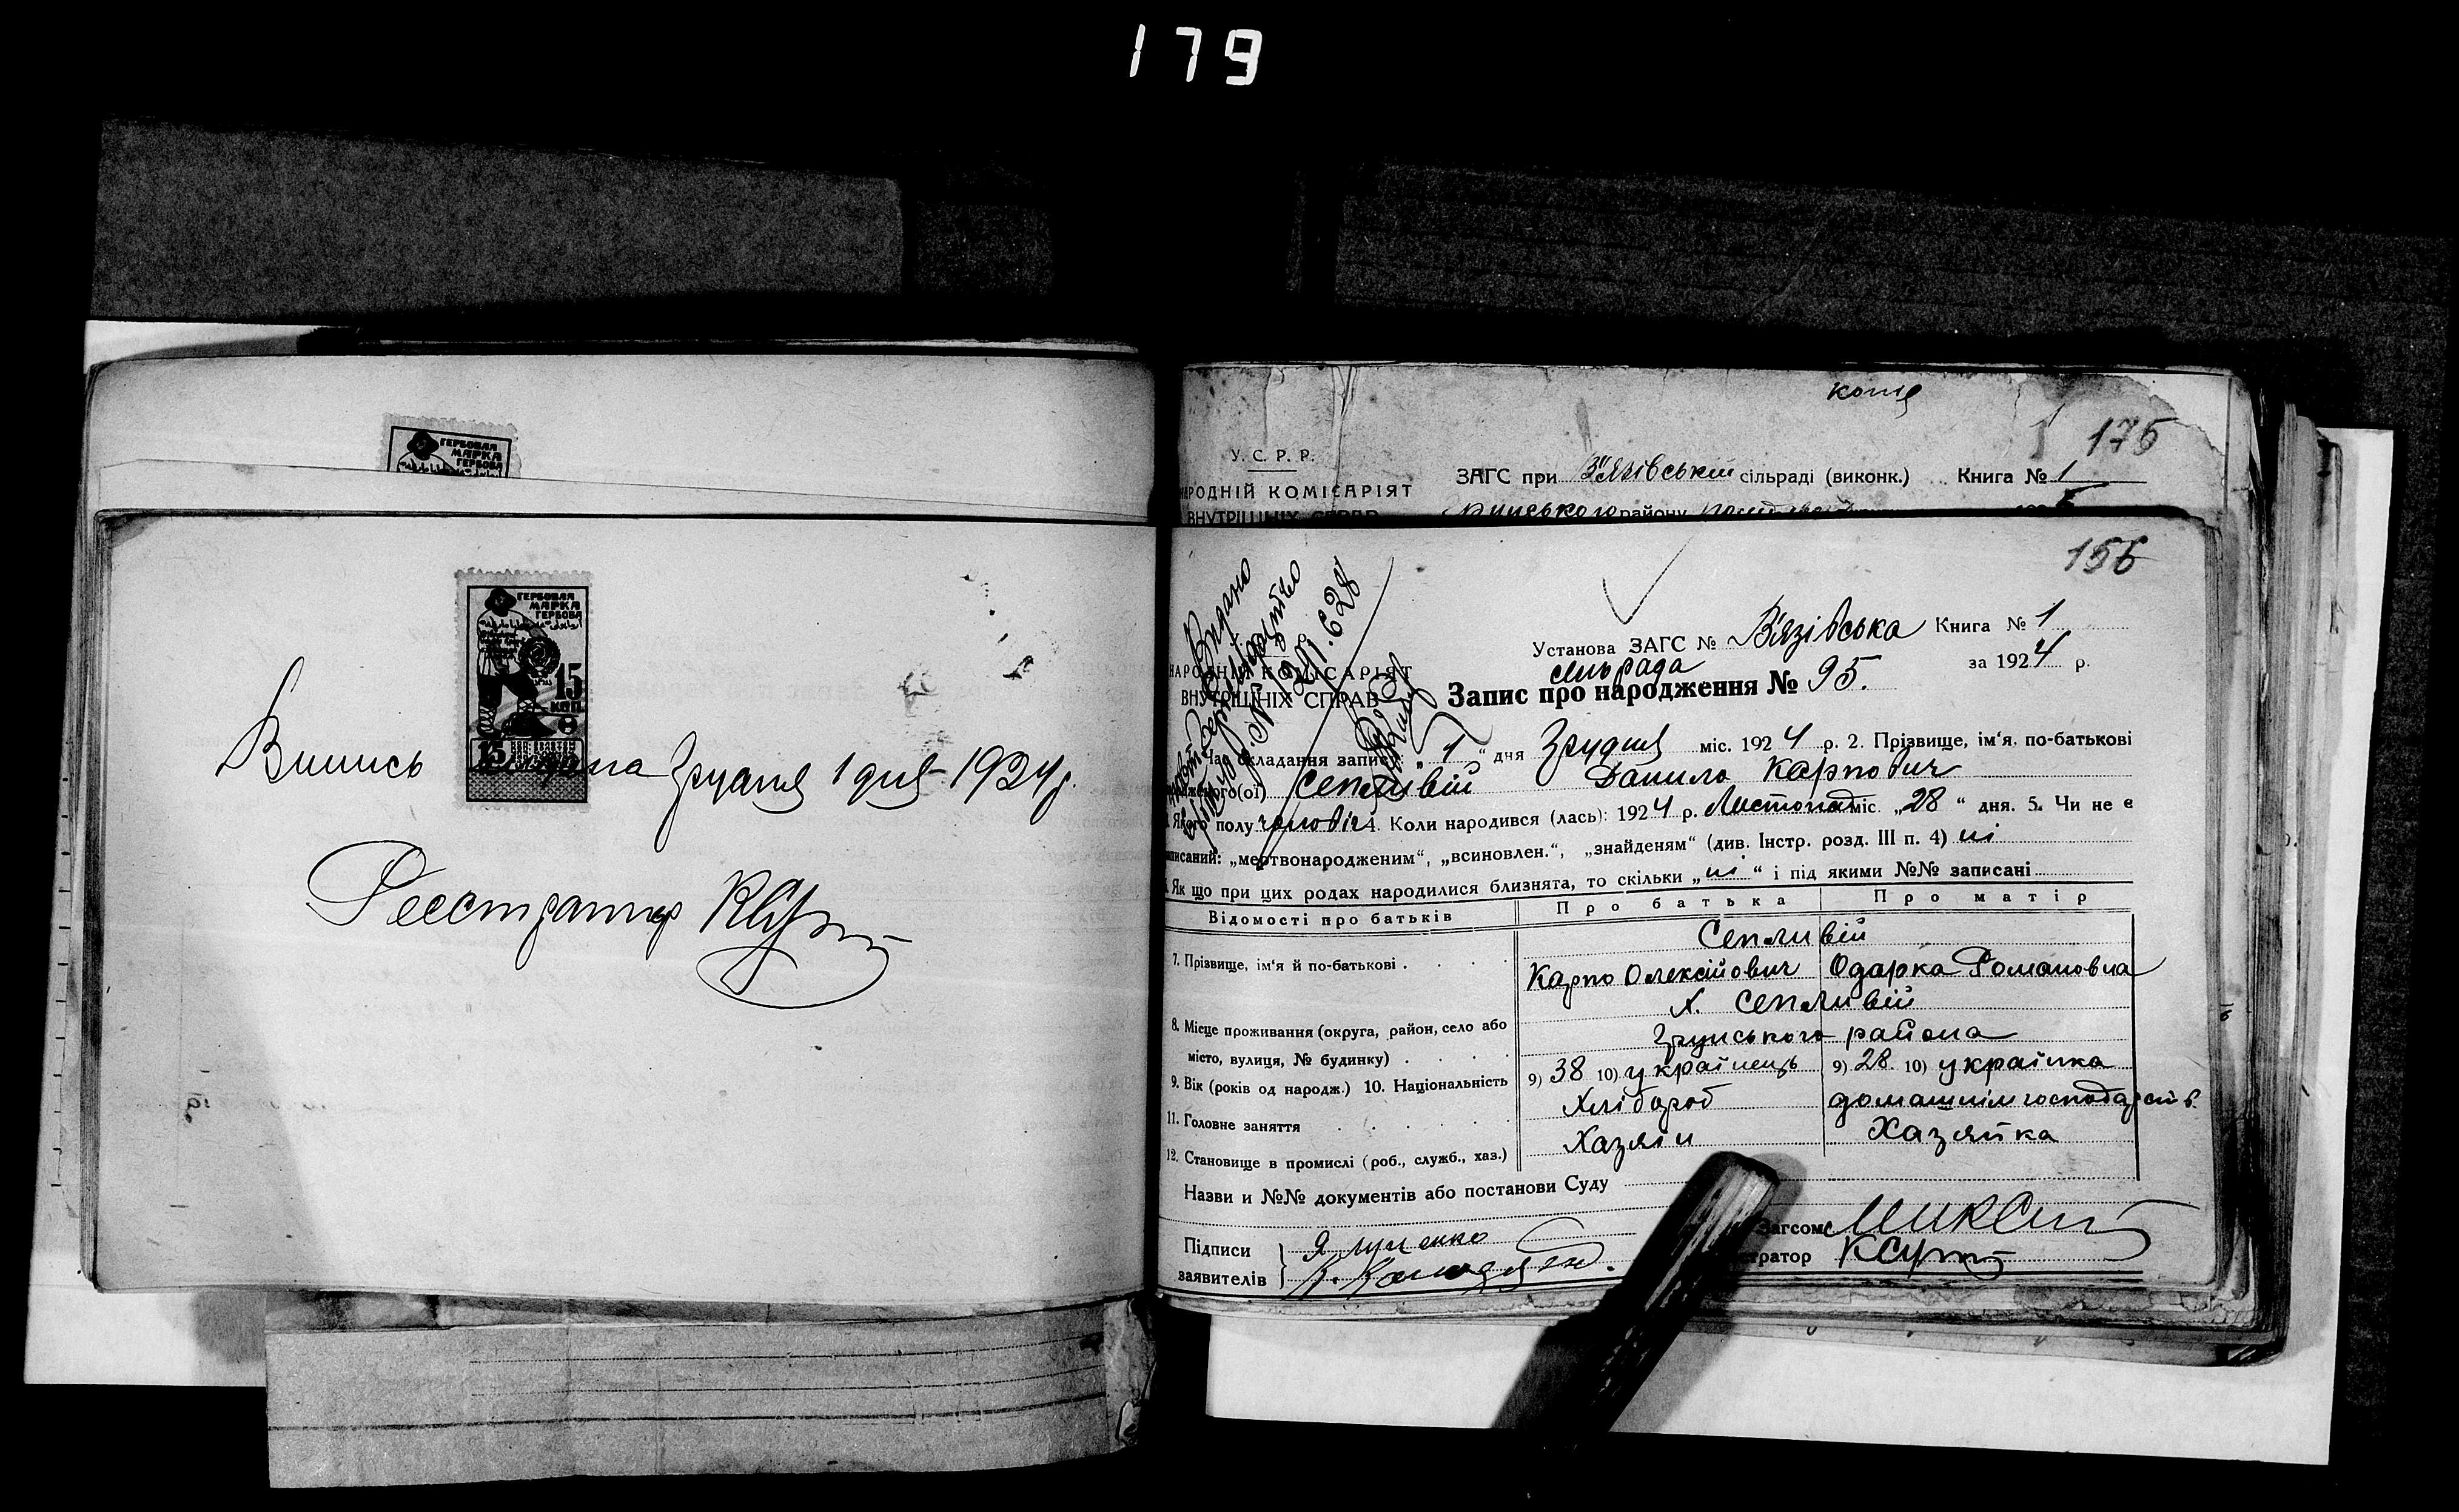 179
ГЕРБОВАЯ
МАРКА
ГЕРБОВА
ГЕРБОВАЯ
МАРКА
ГЕРБОВА
15
КОП.
15
Випись на Грудня 1 дня 1924 р.
Реєстратор
копія
175
У. С. Р. Р.
НАРОДНІЙ КОМІСАРІЯТ
ВНУТРІШНІХ СПРАВ
ЗАГС при В'язівській сільраді (виконк.) Книга № 1
району
156
Видано
НАРОДНІЙ КОМІСАРІЯТ
ВНУТРІШНІХ СПРАВ
Установа ЗАГС № В'язівська Книга № 1
сільрада за 1924 р.
Запис про народження № 95.
Час складання запису: „1“ дня Грудня міс. 1924 р. 2. Прізвище, ім'я, по-батькові
Сепливій Данило Карпович
Якого полу чоловіч 4. Коли народився (лась): 1924 р. Листопад міс. „28“ дня. 5. Чи не є
записаний: „мертвонародженим“, „всиновлен.“, „знайденям“ (див. Інстр. розд. III п. 4) ні
Як що при цих родах народилися близнята, то скільки „ні“ і під якими №№ записані
Відомості про батьків Про батька Про матір
Сепливій
7. Прізвище, ім'я й по-батькові . Карпо Олексійович Одарка Романовна
Х. Сепливій
8. Місце проживання (округа, район, село або
місто, вулиця, № будинку) . Грунського района
9. Вік (років од народж.) 10. Національність 9) 38 10) українець 9) 28. 10) українка
11. Головне заняття Хлібороб домашнім господарств.
12. Становище в промислі (роб., служб., хаз.) Хазяін Хазяйка
Назви и №№ документів або постанови Суду
Підписи
заявителів
Загсом